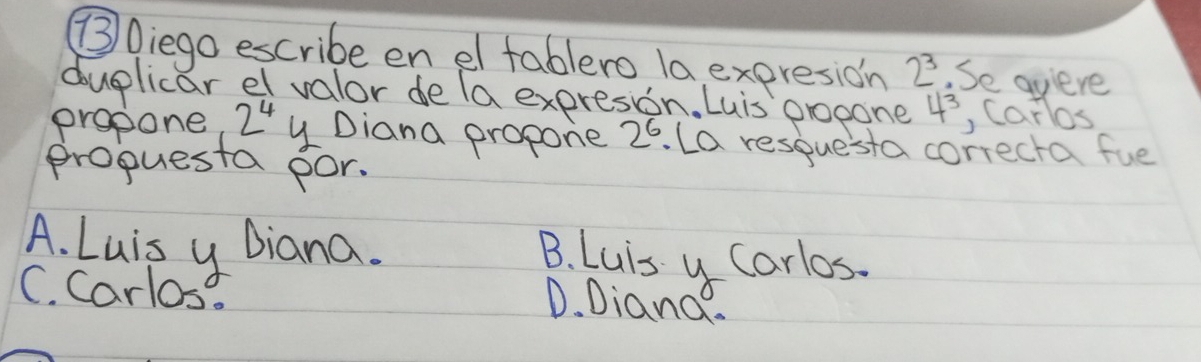 13 Diego escribe en el tablero la expresión 2³. Se quiere
duplicar el valor de la expresión. Luis propone 4³, Carlos
propone, 2⁴ y Diana propone 2⁶. La respuesta correcta fue
propuesta por.
A. Luis y Diana. B. Luis y Carlos.
C. Carlos. D. Diana.